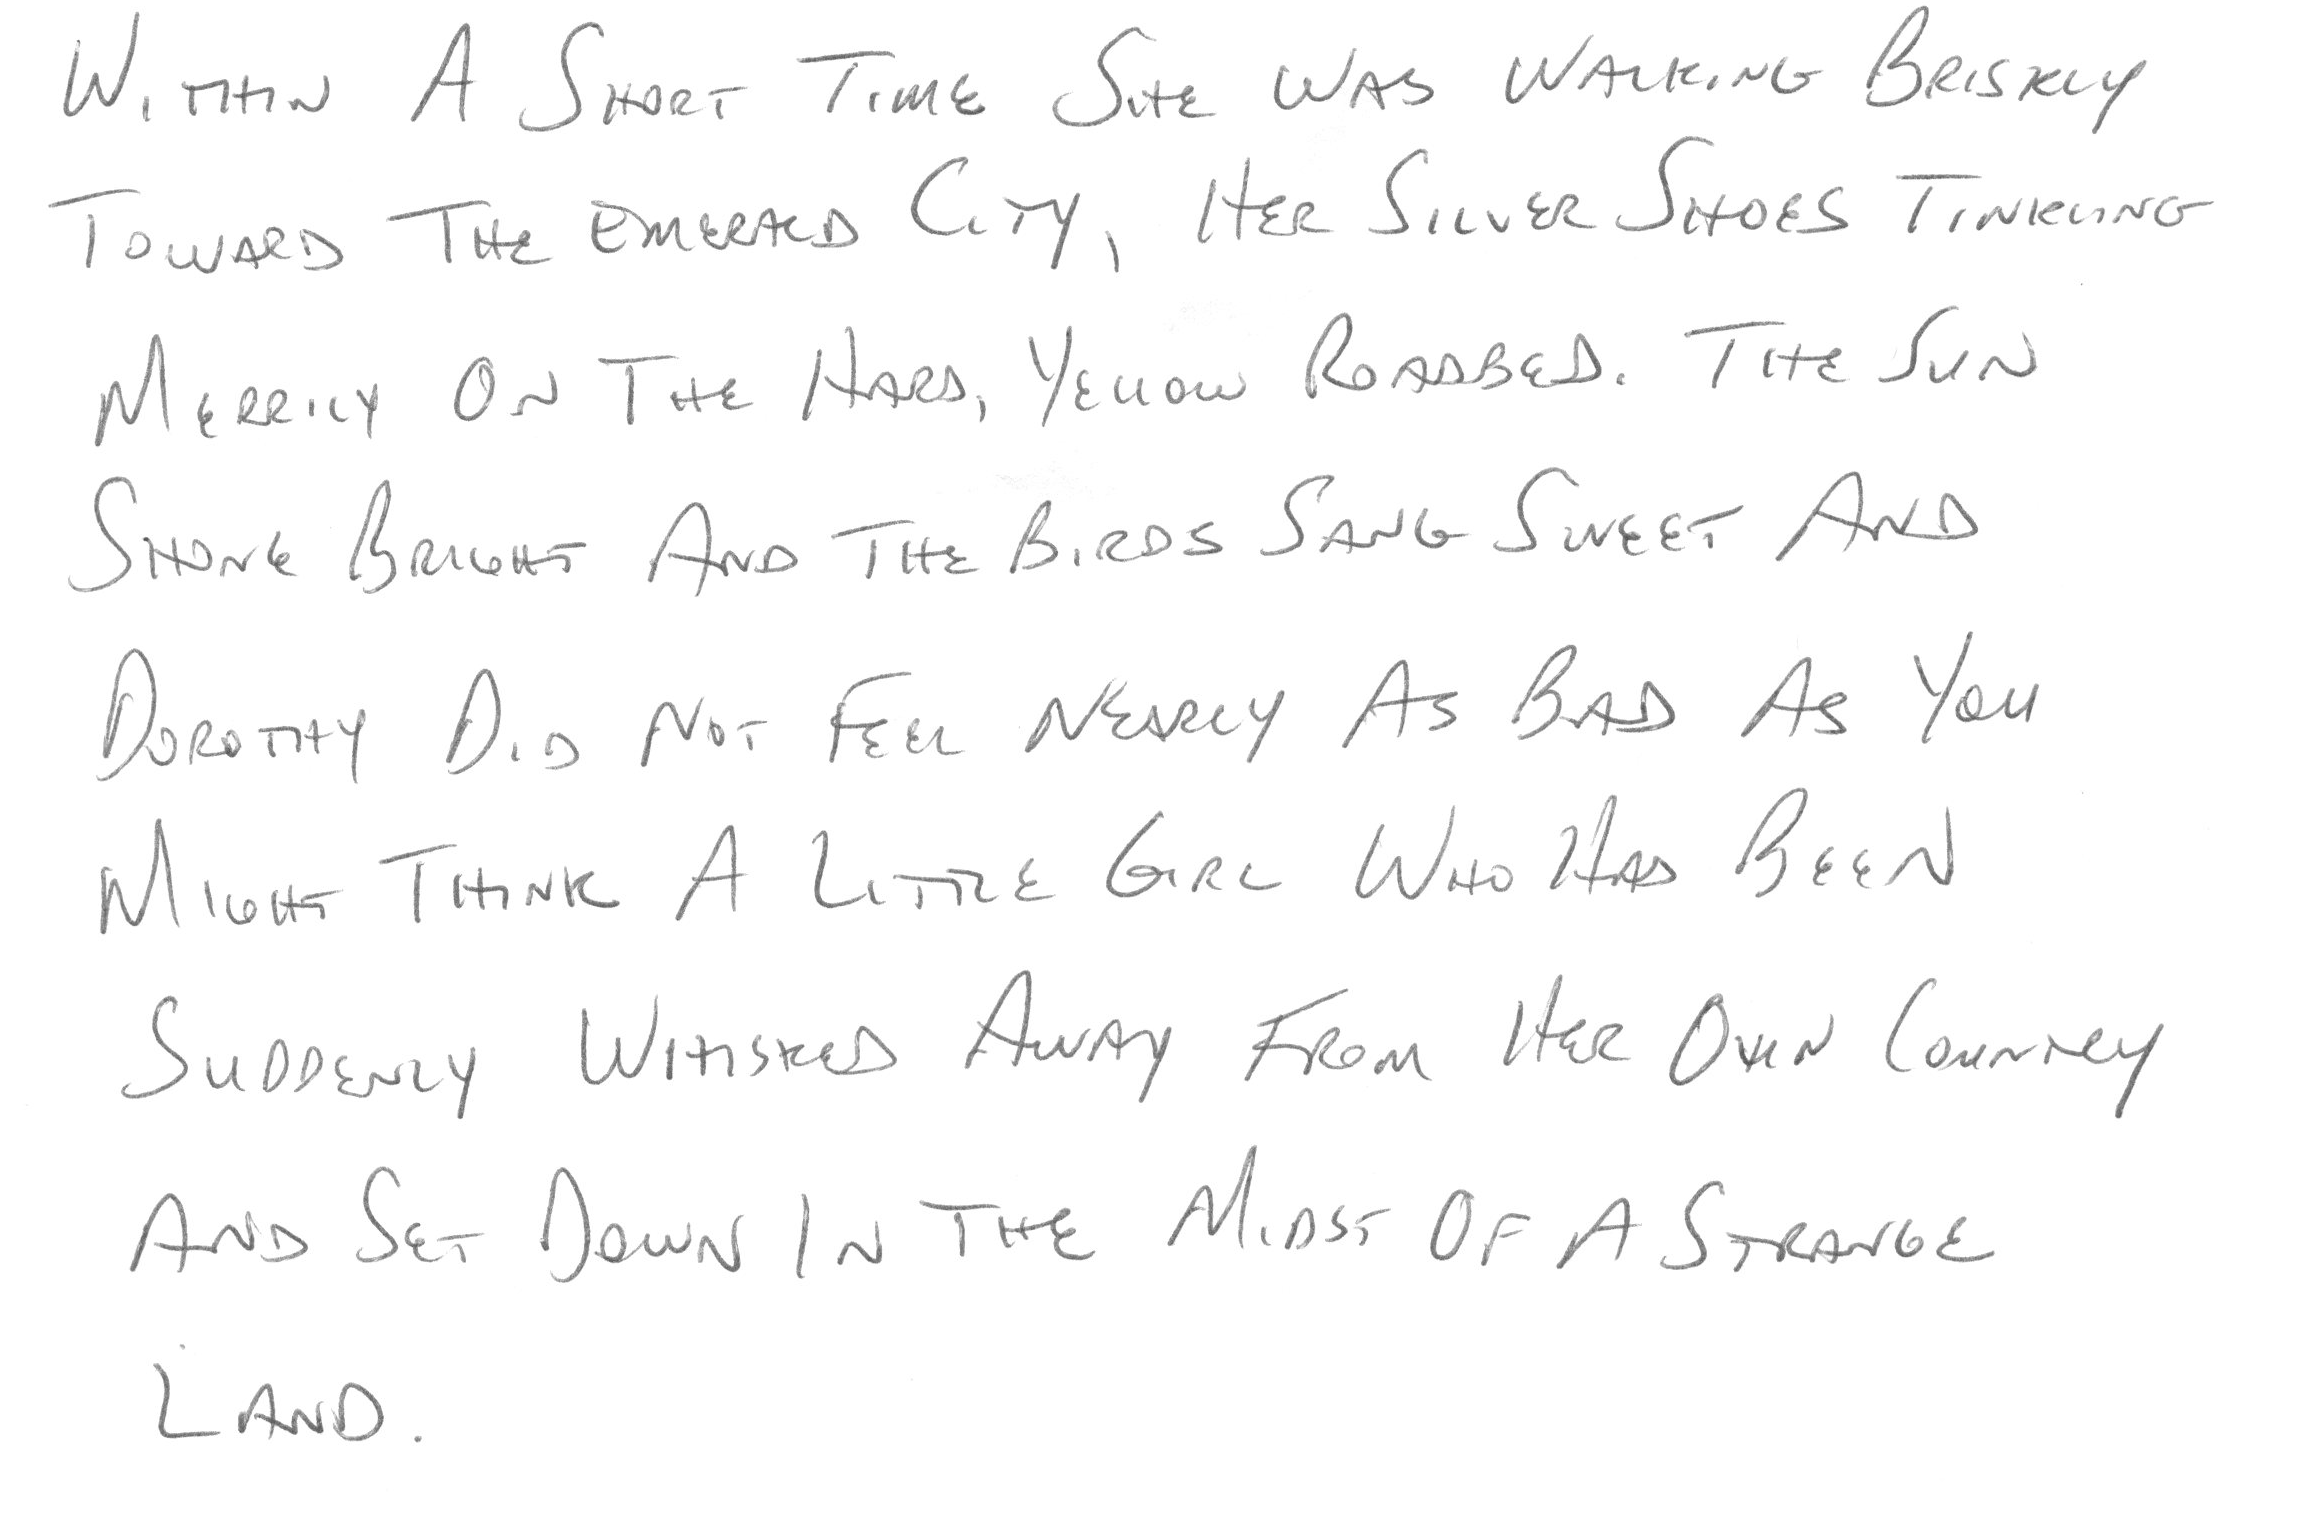 Within A Short Time She Was Walking Briskly
Toward The Emerald City, Her Silver Shoes Tinkling
Merrily On The Hard, Yellow Roadbed. The Sun
Shone Bright And The Birds Sang Sweet And
Dorothy Did Not Feel Nearly As Bad As You
Might Think A Little Girl Who Had Been
Suddenly Whisked Away From Her Own Country
And Set Down In The Midst Of A Strange
Land.